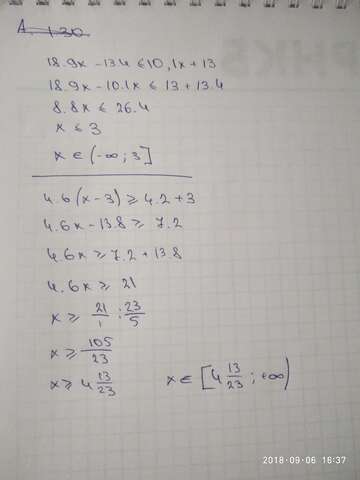 A. 130
18.9x - 13.4 ≤ 10,1x + 13
18.9x - 10.1x ≤ 13 + 13.4
8.8x ≤ 26.4
x ≤ 3
x ∈ (-∞; 3]
4.6(x - 3) ≥ 4.2 + 3
4.6x - 13.8 ≥ 7.2
4.6x ≥ 7.2 + 13.8
4.6x ≥ 21
x ≥ 21/1 : 23/5
x ≥ 105/23
x ≥ 4 13/23 x ∈ [4 13/23; +∞)
2018-09-06 16:37